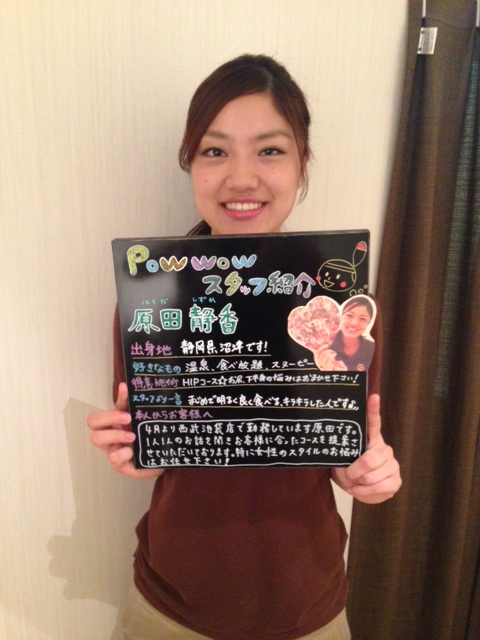 Pow wow
スタッフ紹介
はらだ しずか
原田 静香
出身地 静岡県沼津です!
好きなもの 温泉、食べ放題、スヌーピー
得意施術 HIPコース☆お尻、下半身の悩みはお任せ下さい!
スタッフより一言 まじめで明るく良く食べる、キラキラした人ですよ♪
本人からお客様へ
4月より西武池袋店で勤務しています原田です。
1人1人のお話を聞きお客様に合ったコースを提案さ
せていただいております。特に女性のスタイルのお悩み
はお任せ下さい!